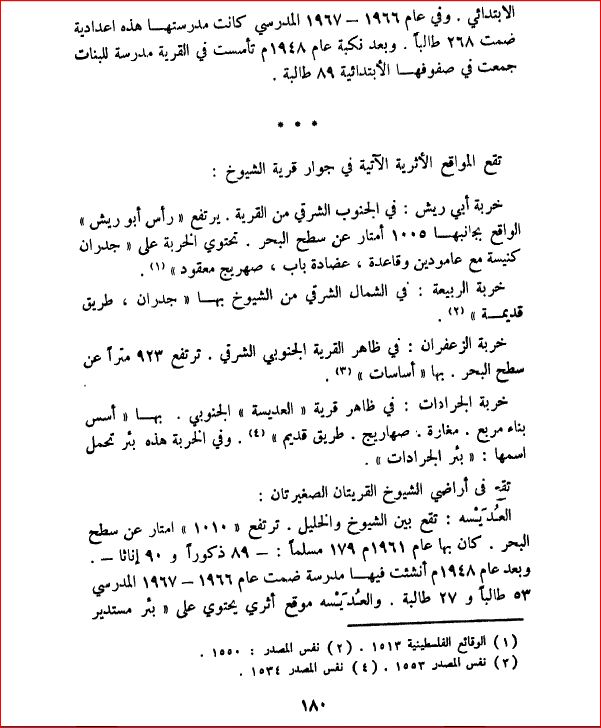 الابتدائي . وفي عام ١٩٦٦ – ١٩٦٧ المدرسي كانت مدرستهـا هذه اعدادية
ضمت ٢٦٨ طالباً . وبعد نكبة عام ١٩٤٨م تأسست في القرية مدرسة للبنات
جمعت في صفوفهـا الأبتدائية ٨٩ طالبة .
* * *
تقع المواقع الأثرية الآتية في جوار قرية الشيوخ :
خربة أبي ريش : في الجنوب الشرقي من القرية . يرتفع « رأس أبو ريش »
الواقع بجانبهـا ١٠٠٥ أمتار عن سطح البحر . تحتوي الخربة على « جدران
كنيسة مع عامودين وقاعدة ، عضادة باب ، صهريج معقود » (١) .
خربة الربيعة : في الشمال الشرقي من الشيوخ بهـا « جدران ، طريق
قديمـة » (٢) .
خربة الزعفران : في ظاهر القرية الجنوبي الشرقي . ترتفع ٩٢٣ متراً عن
سطح البحر . بها « أساسات » (٣) .
خربة الجرادات : في ظاهر قرية « العديسة » الجنوبي . بهـا « أسس
بناء مربع . مغارة . صهاريج . طريق قديم » (٤) . وفي الخربة هذه بئر تحمل
اسمها : « بئر الجرادات » .
تقع في أراضي الشيوخ القريتان الصغيرتان :
العُدَيْسه : تقع بين الشيوخ والخليل . ترتفع « ١٠١٠ » امتار عن سطح
البحر . كان بها عام ١٩٦١م ١٧٩ مسلماً : – ٨٩ ذكوراً و ٩٠ إناثا – .
وبعد عام ١٩٤٨م أنشئت فيهـا مدرسة ضمت عام ١٩٦٦ – ١٩٦٧ المدرسي
٥٣ طالباً و ٢٧ طالبة . والعُدَيْسه موقع أثري يحتوي على « بئر مستدير
(١) الوقائع الفلسطينية ١٥١٣ . (٢) نفس المصدر : ١٥٥٠ .
(٣) نفس المصدر ١٥٥٣ . (٤) نفس المصدر ١٥٣٤ .
١٨٠